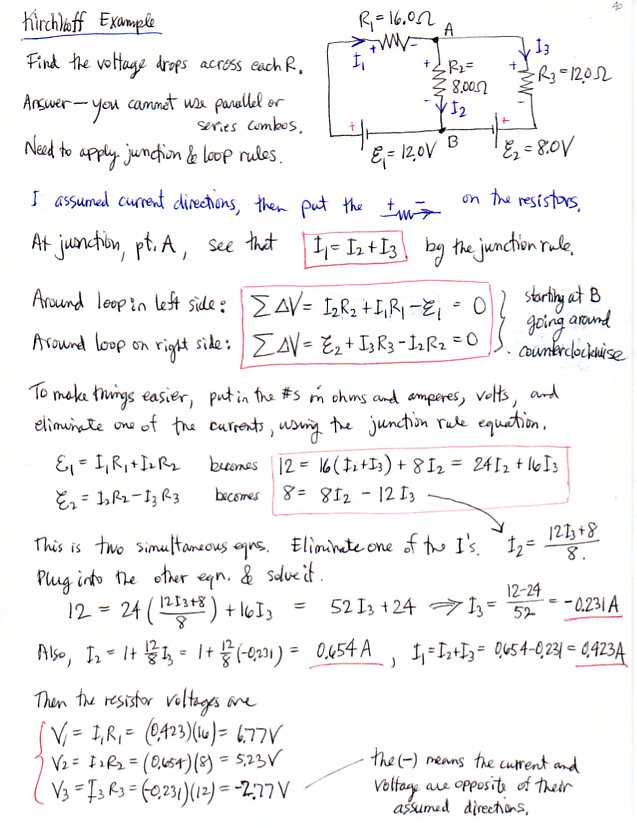 40
Kirchhoff Example
R₁=16.0Ω
A
I₁
+ -
I₃
+
R₂=
8.00Ω
-
I₂
+
R₃=12.0Ω
-
+
ℰ₁=12.0V
B
+
ℰ₂=8.0V
Find the voltage drops across each R.
Answer — you cannot use parallel or
series combos.
Need to apply junction & loop rules.
I assumed current directions, then put the + - on the resistors.
At junction, pt. A, see that I₁=I₂+I₃ by the junction rule.
Around loop in left side: ΣΔV= I₂R₂+I₁R₁-ℰ₁ = 0
Around loop on right side: ΣΔV= ℰ₂+I₃R₃-I₂R₂=0
starting at B
going around
counterclockwise
To make things easier, put in the #s in ohms and amperes, volts, and
eliminate one of the currents, using the junction rule equation.
ℰ₁ = I₁R₁+I₂R₂ becomes 12 = 16(I₂+I₃) + 8I₂ = 24I₂+16I₃
ℰ₂ = I₂R₂-I₃R₃ becomes 8 = 8I₂ - 12I₃
This is two simultaneous eqns. Eliminate one of the I's. I₂ = (12I₃+8)/8.
Plug into the other eqn. & solve it.
12 = 24((12I₃+8)/8) + 16I₃ = 52I₃+24 ⇒ I₃ = (12-24)/52 = -0.231A
Also, I₂ = 1+(12/8)I₃ = 1+(12/8)(-0.231) = 0.654A, I₁=I₂+I₃= 0.654-0.231=0.423A
Then the resistor voltages are
V₁ = I₁R₁ = (0.423)(16) = 6.77V
V₂ = I₂R₂ = (0.654)(8) = 5.23V
V₃ = I₃R₃ = (-0.231)(12) = -2.77V
the (-) means the current and
voltage are opposite of their
assumed directions.